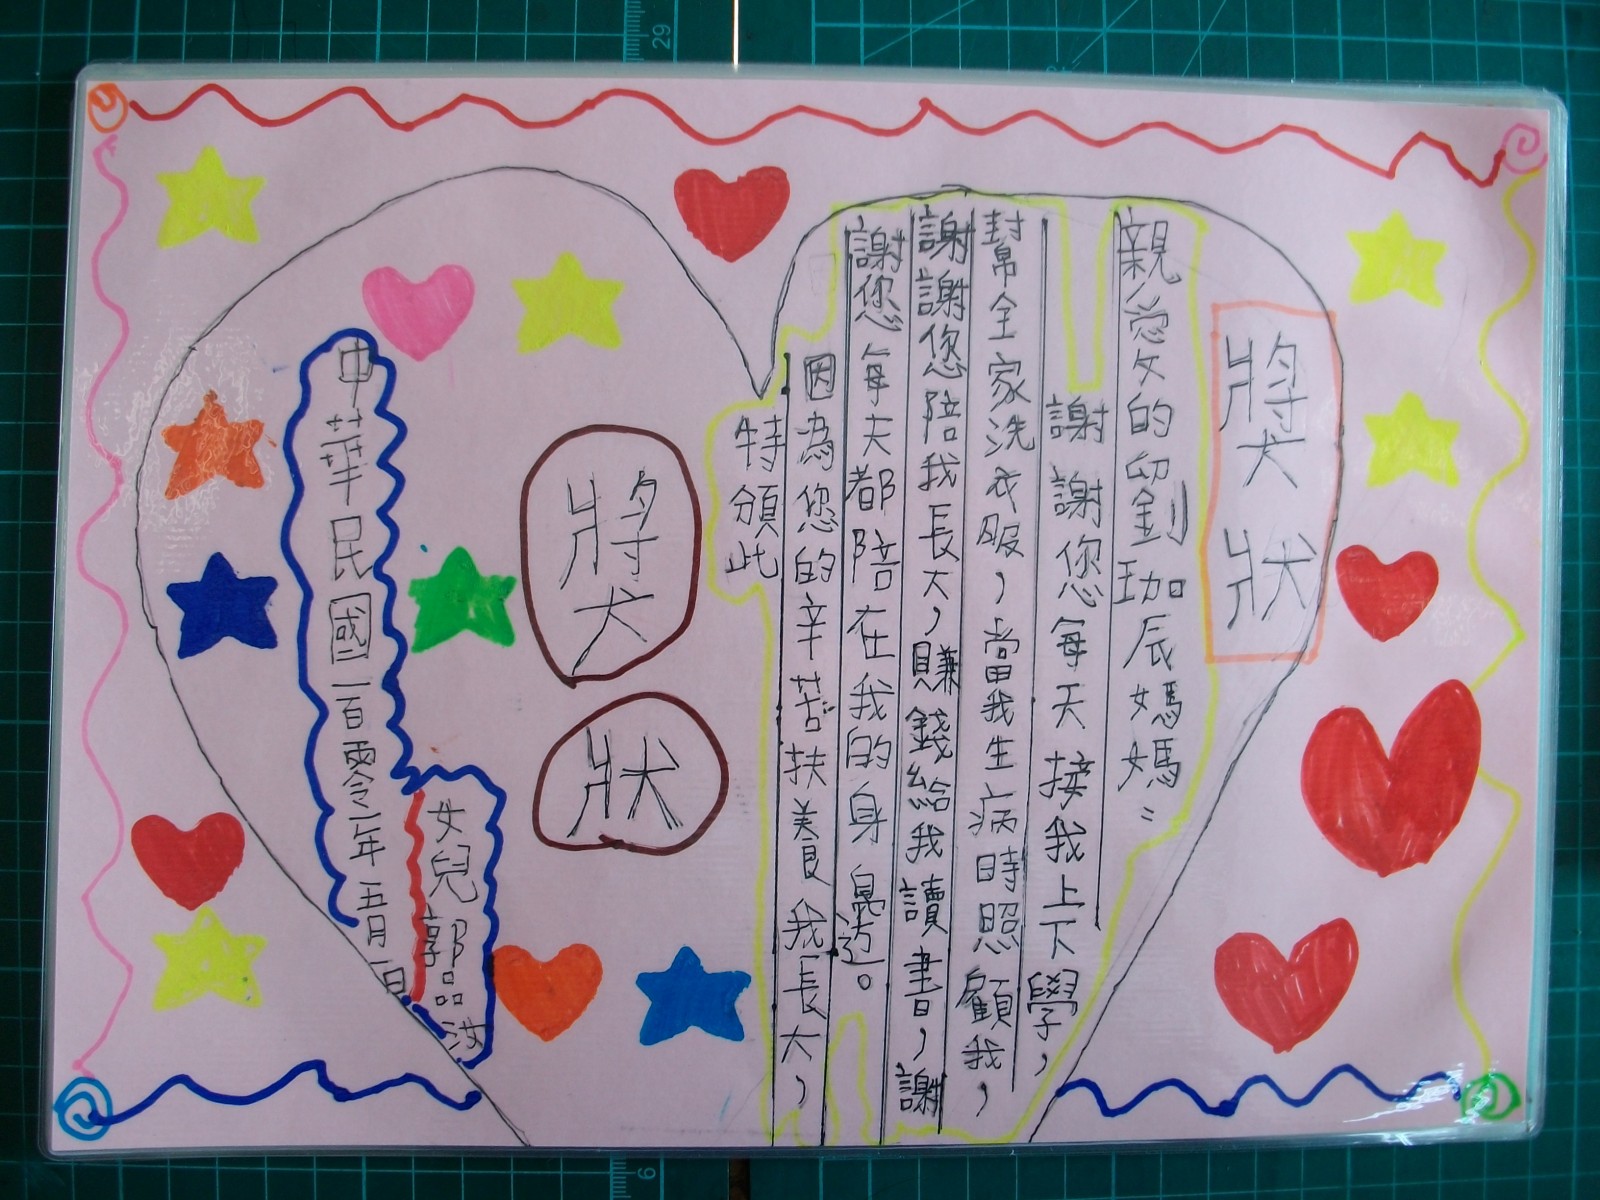 獎狀
親愛的劉珈辰媽媽：
謝謝您每天接我上下學，
幫全家洗衣服，當我生病時照顧我，
謝謝您陪我長大，賺錢給我讀書，謝
謝您每天都陪在我的身邊。
因為您的辛苦扶養我長大，
特頒此
獎狀
女兒郭品汝
中華民國一百零一年五月一日
29